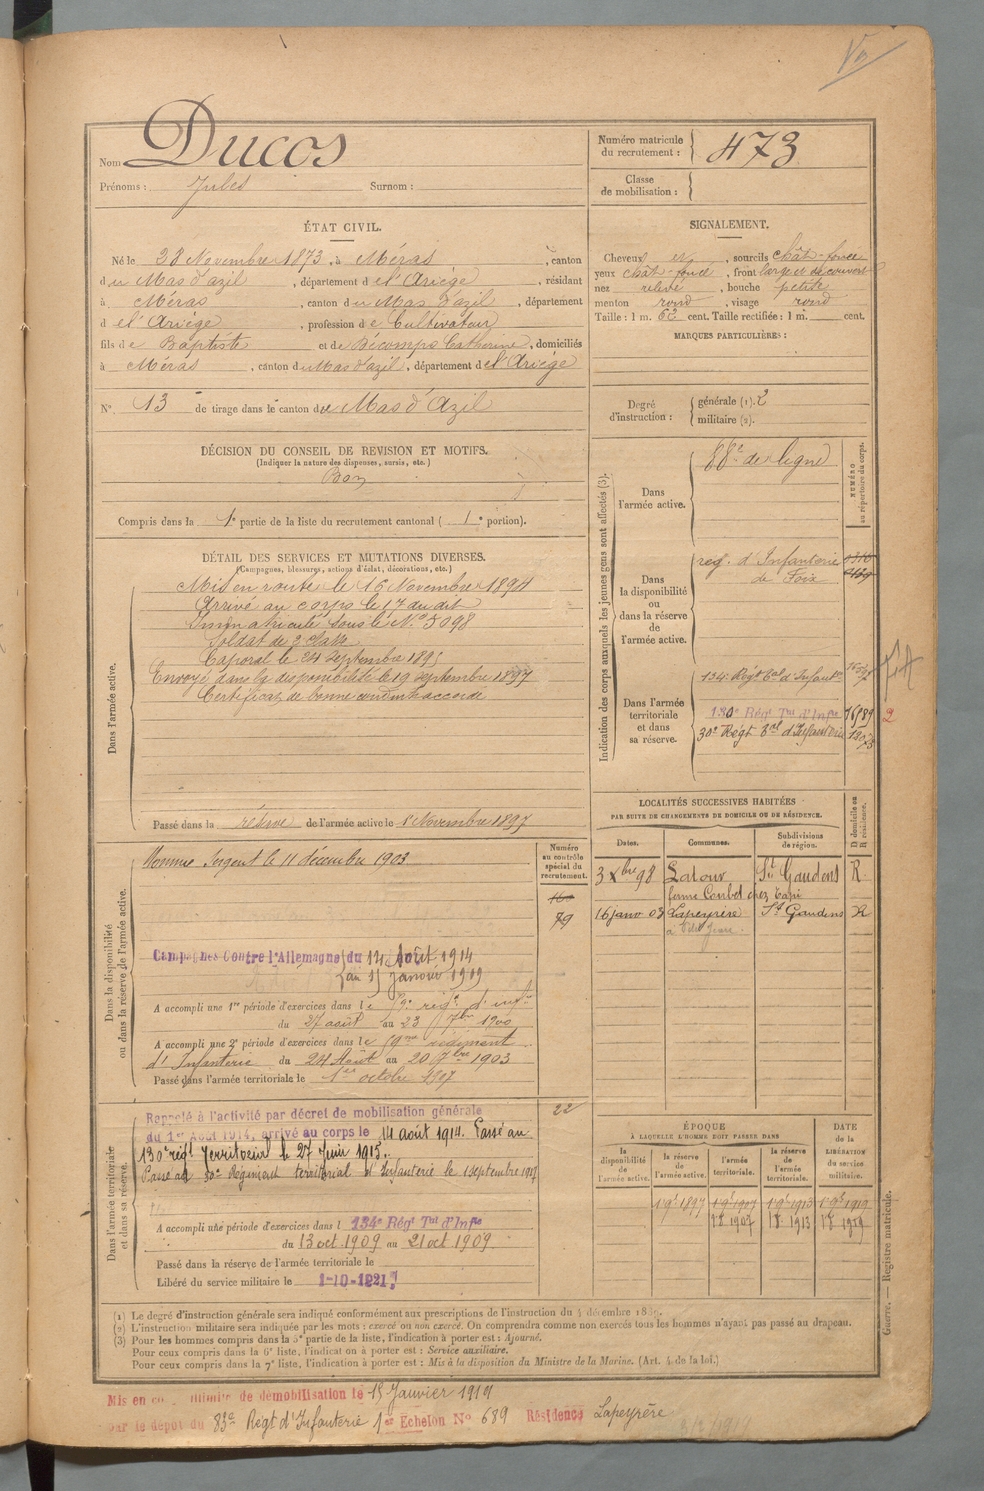 Nom Ducos
Prénoms : Jules Surnom :
Numéro matricule du recrutement : 473
Classe de mobilisation :
ÉTAT CIVIL.
Né le 28 Novembre 1873, à Méras, canton
du Mas d'azil, département de l'Ariège, résidant
à Méras, canton du Mas d'azil, département
de l'Ariège, profession de Cultivateur
fils de Baptiste et de Bécomps Catherine, domiciliés
à Méras, canton du Mas d'azil, département de l'Ariège
N° 13 de tirage dans le canton de Mas d'Azil
SIGNALEMENT.
Cheveux et, sourcils chât-foncé
yeux chât-foncé, front large et découvert
nez relevé, bouche petite
menton rond, visage rond
Taille : 1 m. 62 cent. Taille rectifiée : 1 m. cent.
MARQUES PARTICULIÈRES :
Degré d'instruction : générale (1). 2
militaire (2).
DÉCISION DU CONSEIL DE REVISION ET MOTIFS.
(Indiquer la nature des dispenses, sursis, etc.)
Bon
Compris dans la 1e partie de la liste du recrutement cantonal ( 1e portion).
DÉTAIL DES SERVICES ET MUTATIONS DIVERSES.
(Campagnes, blessures, actions d'éclat, décorations, etc.)
Dans l'armée active.
Mis en route le 16 Novembre 1894
Arrivé au corps le 17 au dit
Immatriculé sous le N° 5098
Soldat de 2e classe
Caporal le 24 Septembre 1895
Envoyé dans la disponibilité le 19 septembre 1897
Certificat de bonne conduite accordé
Passé dans la réserve de l'armée active le 1 Novembre 1897
Indication des corps auxquels les jeunes gens sont affectés (3).
NUMÉRO au répertoire du corps.
Dans l'armée active.
88e de ligne
Dans la disponibilité ou dans la réserve de l'armée active.
rég. d'Infanterie
de Foix
Dans l'armée territoriale et dans sa réserve.
134e Régt Tal d'Infant
130e Régt Tal d'Infie
30e Régt Tal d'Infanterie
2
LOCALITÉS SUCCESSIVES HABITÉES
PAR SUITE DE CHANGEMENTS DE DOMICILE OU DE RÉSIDENCE.
Dates. Communes. Subdivisions de région. D domicile ou R résidence.
3 Xbre 98 Latour St Gaudens R
ferme Courbet chez Tapi
16 janv 03 Lapeyrère St Gaudens R
à Petit Jean.
Numéro au contrôle spécial du recrutement.
Dans la disponibilité ou dans la réserve de l'armée active.
Nommé Sergent le 11 décembre 1903
79
Campagnes Contre l'Allemagne du 14 Août 1914
au 15 Janvier 1919
A accompli une 1re période d'exercices dans le 59e régt d'infie
du 27 août au 23 7bre 1900
A accompli une 2e période d'exercices dans le 59me régiment
d'Infanterie du 24 Août au 20 7bre 1903
Passé dans l'armée territoriale le 1er octobre 1907
Dans l'armée territoriale et dans sa réserve.
22
Rappelé à l'activité par décret de mobilisation générale
du 1er Août 1914, arrivé au corps le 14 août 1914. Passé au
130e régt territorial le 27 Juin 1915.
Passé au 30e Régiment territorial d'Infanterie le 1 septembre 1917
A accompli une période d'exercices dans l 134e Régt Tal d'Infie
du 13 oct. 1909 au 21 oct 1909
Passé dans la réserve de l'armée territoriale le
Libéré du service militaire le 1-10-1921
ÉPOQUE
À LAQUELLE L'HOMME DOIT PASSER DANS
la disponibilité de l'armée active. la réserve de l'armée active. l'armée territoriale. la réserve de l'armée territoriale. DATE de la LIBÉRATION du service militaire.
1 9e 1897 1 9e 1907 1 9e 1913 1 9e 1919
1 8 1907 1 8 1913 1 8 1919
(1) Le degré d'instruction générale sera indiqué conformément aux prescriptions de l'instruction du 4 décembre 1889.
(2) L'instruction militaire sera indiquée par les mots : exercé ou non exercé. On comprendra comme non exercés tous les hommes n'ayant pas passé au drapeau.
(3) Pour les hommes compris dans la 5e partie de la liste, l'indication à porter est : Ajourné.
Pour ceux compris dans la 6e liste, l'indication à porter est : Service auxiliaire.
Pour ceux compris dans la 7e liste, l'indication à porter est : Mis à la disposition du Ministre de la Marine. (Art. 4 de la loi.)
Guerre. — Registre matricule.
Mis en de démobilisation le 15 Janvier 1919
par le dépôt du 83e Régt d'Infanterie 1er Echelon N° 689 Résidence Lapeyrère